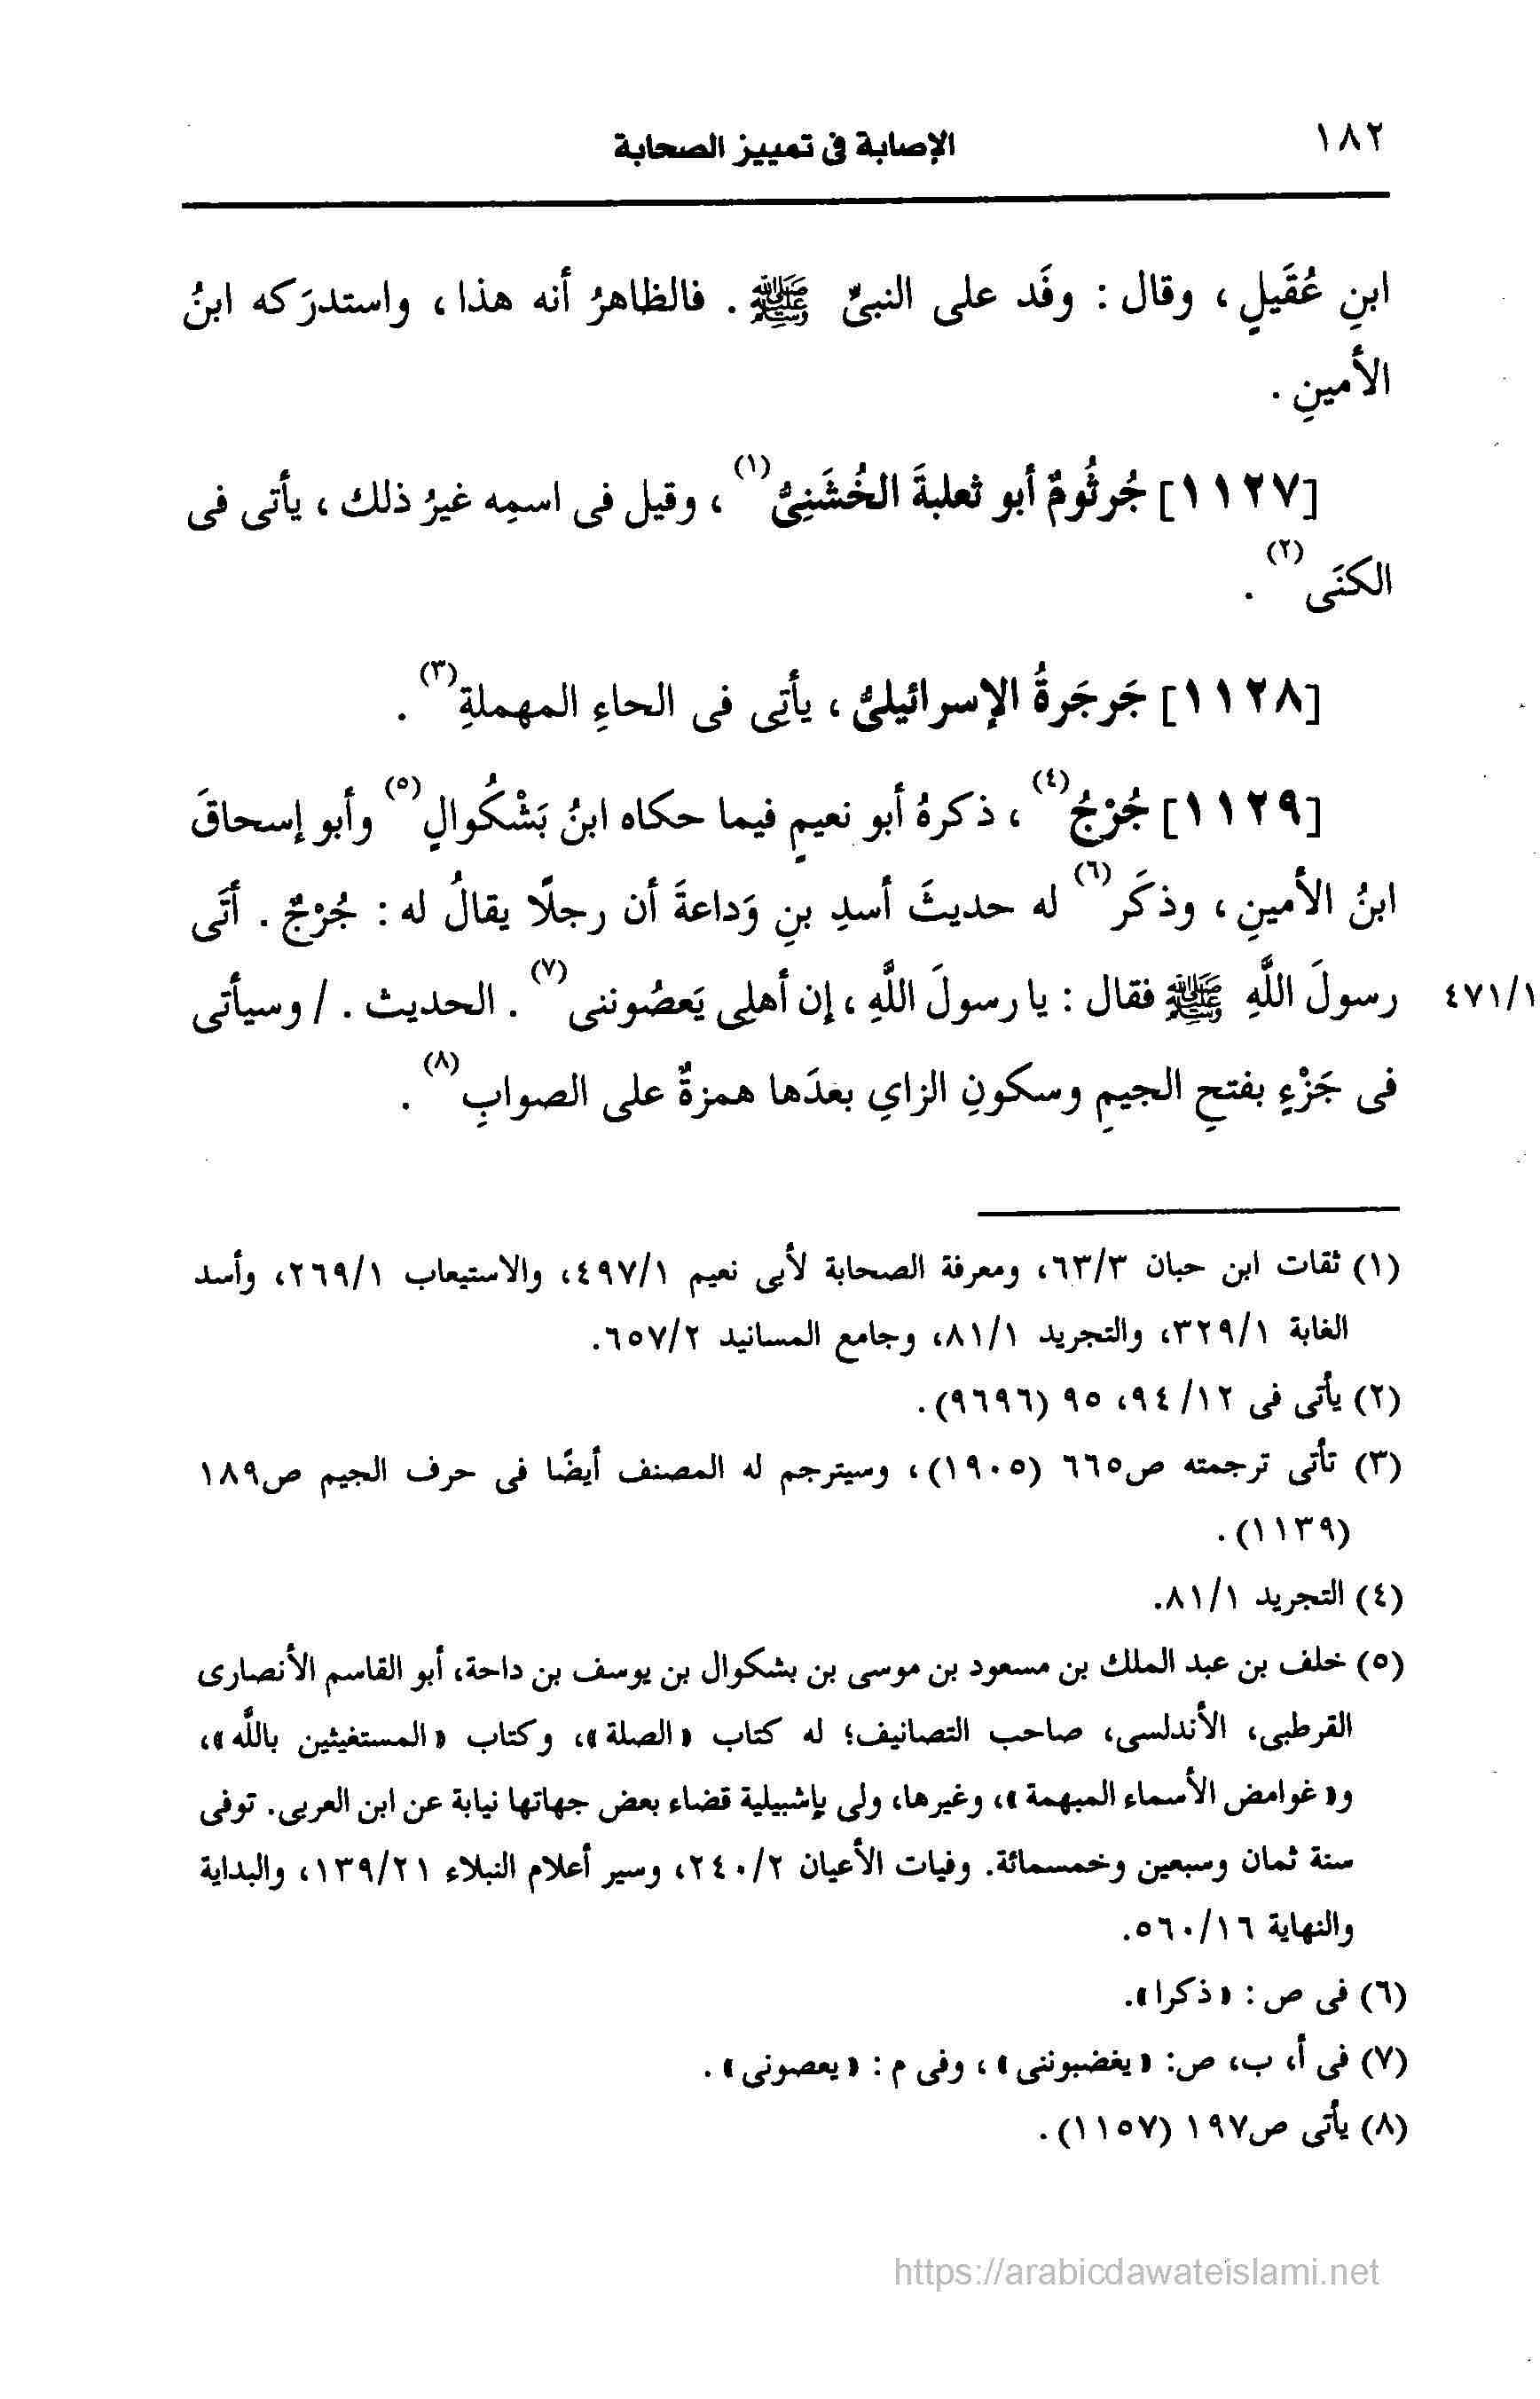 ١٨٢
الإصابة فى تمييز الصحابة
ابنِ عُقَيلٍ ، وقال : وفَد على النبىِّ ﷺ . فالظاهرُ أنه هذا ، واستدرَكه ابنُ
الأمينِ .
[١١٢٧] جُرثُومٌ أبو ثعلبةَ الخُشَنِىُّ(١) ، وقيل فى اسمِه غيرُ ذلك ، يأتى فى
الكنَى(٢) .
[١١٢٨] جَرجَرةُ الإسرائيلىُّ ، يأتى فى الحاءِ المهملةِ(٣) .
[١١٢٩] جُرْجُ(٤) ، ذكرهُ أبو نعيمٍ فيما حكاه ابنُ بَشْكُوالٍ(٥) وأبو إسحاقَ
ابنُ الأمينِ ، وذكَر(٦) له حديثَ أسدِ بنِ وَداعةَ أن رجلًا يقالُ له : جُرْجٌ . أتَى
رسولَ اللَّهِ ﷺ فقال : يا رسولَ اللَّهِ ، إن أهلِى يَعصُوننى(٧) . الحديث . / وسيأتى
٤٧١/١
فى جَزْءٍ بفتحِ الجيمِ وسكونِ الزايِ بعدَها همزةٌ على الصوابِ(٨) .
(١) ثقات ابن حبان ٦٣/٣، ومعرفة الصحابة لأبى نعيم ٤٩٧/١، والاستيعاب ٢٦٩/١، وأسد
الغابة ٣٢٩/١، والتجريد ٨١/١، وجامع المسانيد ٦٥٧/٢.
(٢) يأتى فى ١٢/ ٩٤، ٩٥ (٩٦٩٦) .
(٣) تأتى ترجمته ص٦٦٥ (١٩٠٥) ، وسيترجم له المصنف أيضًا فى حرف الجيم ص١٨٩
(١١٣٩) .
(٤) التجريد ٨١/١.
(٥) خلف بن عبد الملك بن مسعود بن موسى بن بشكوال بن يوسف بن داحة، أبو القاسم الأنصارى
القرطبى، الأندلسى، صاحب التصانيف؛ له كتاب «الصلة»، وكتاب «المستغيثين باللَّه»،
و«غوامض الأسماء المبهمة»، وغيرها، ولى بإشبيلية قضاء بعض جهاتها نيابة عن ابن العربى. توفى
سنة ثمان وسبعين وخمسمائة. وفيات الأعيان ٢٤٠/٢، وسير أعلام النبلاء ١٣٩/٢١، والبداية
والنهاية ٥٦٠/١٦.
(٦) فى ص : «ذكرا».
(٧) فى أ، ب، ص: «يغضبوننى» ، وفى م : «يعصونى» .
(٨) يأتى ص١٩٧ (١١٥٧) .
https://arabicdawateislami.net